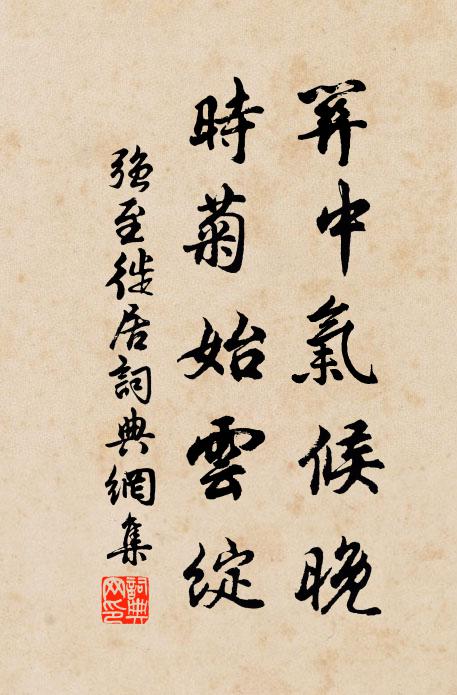 關中氣候晚
時菊始雲綻
強至徙居詞典網集
詞典
网印